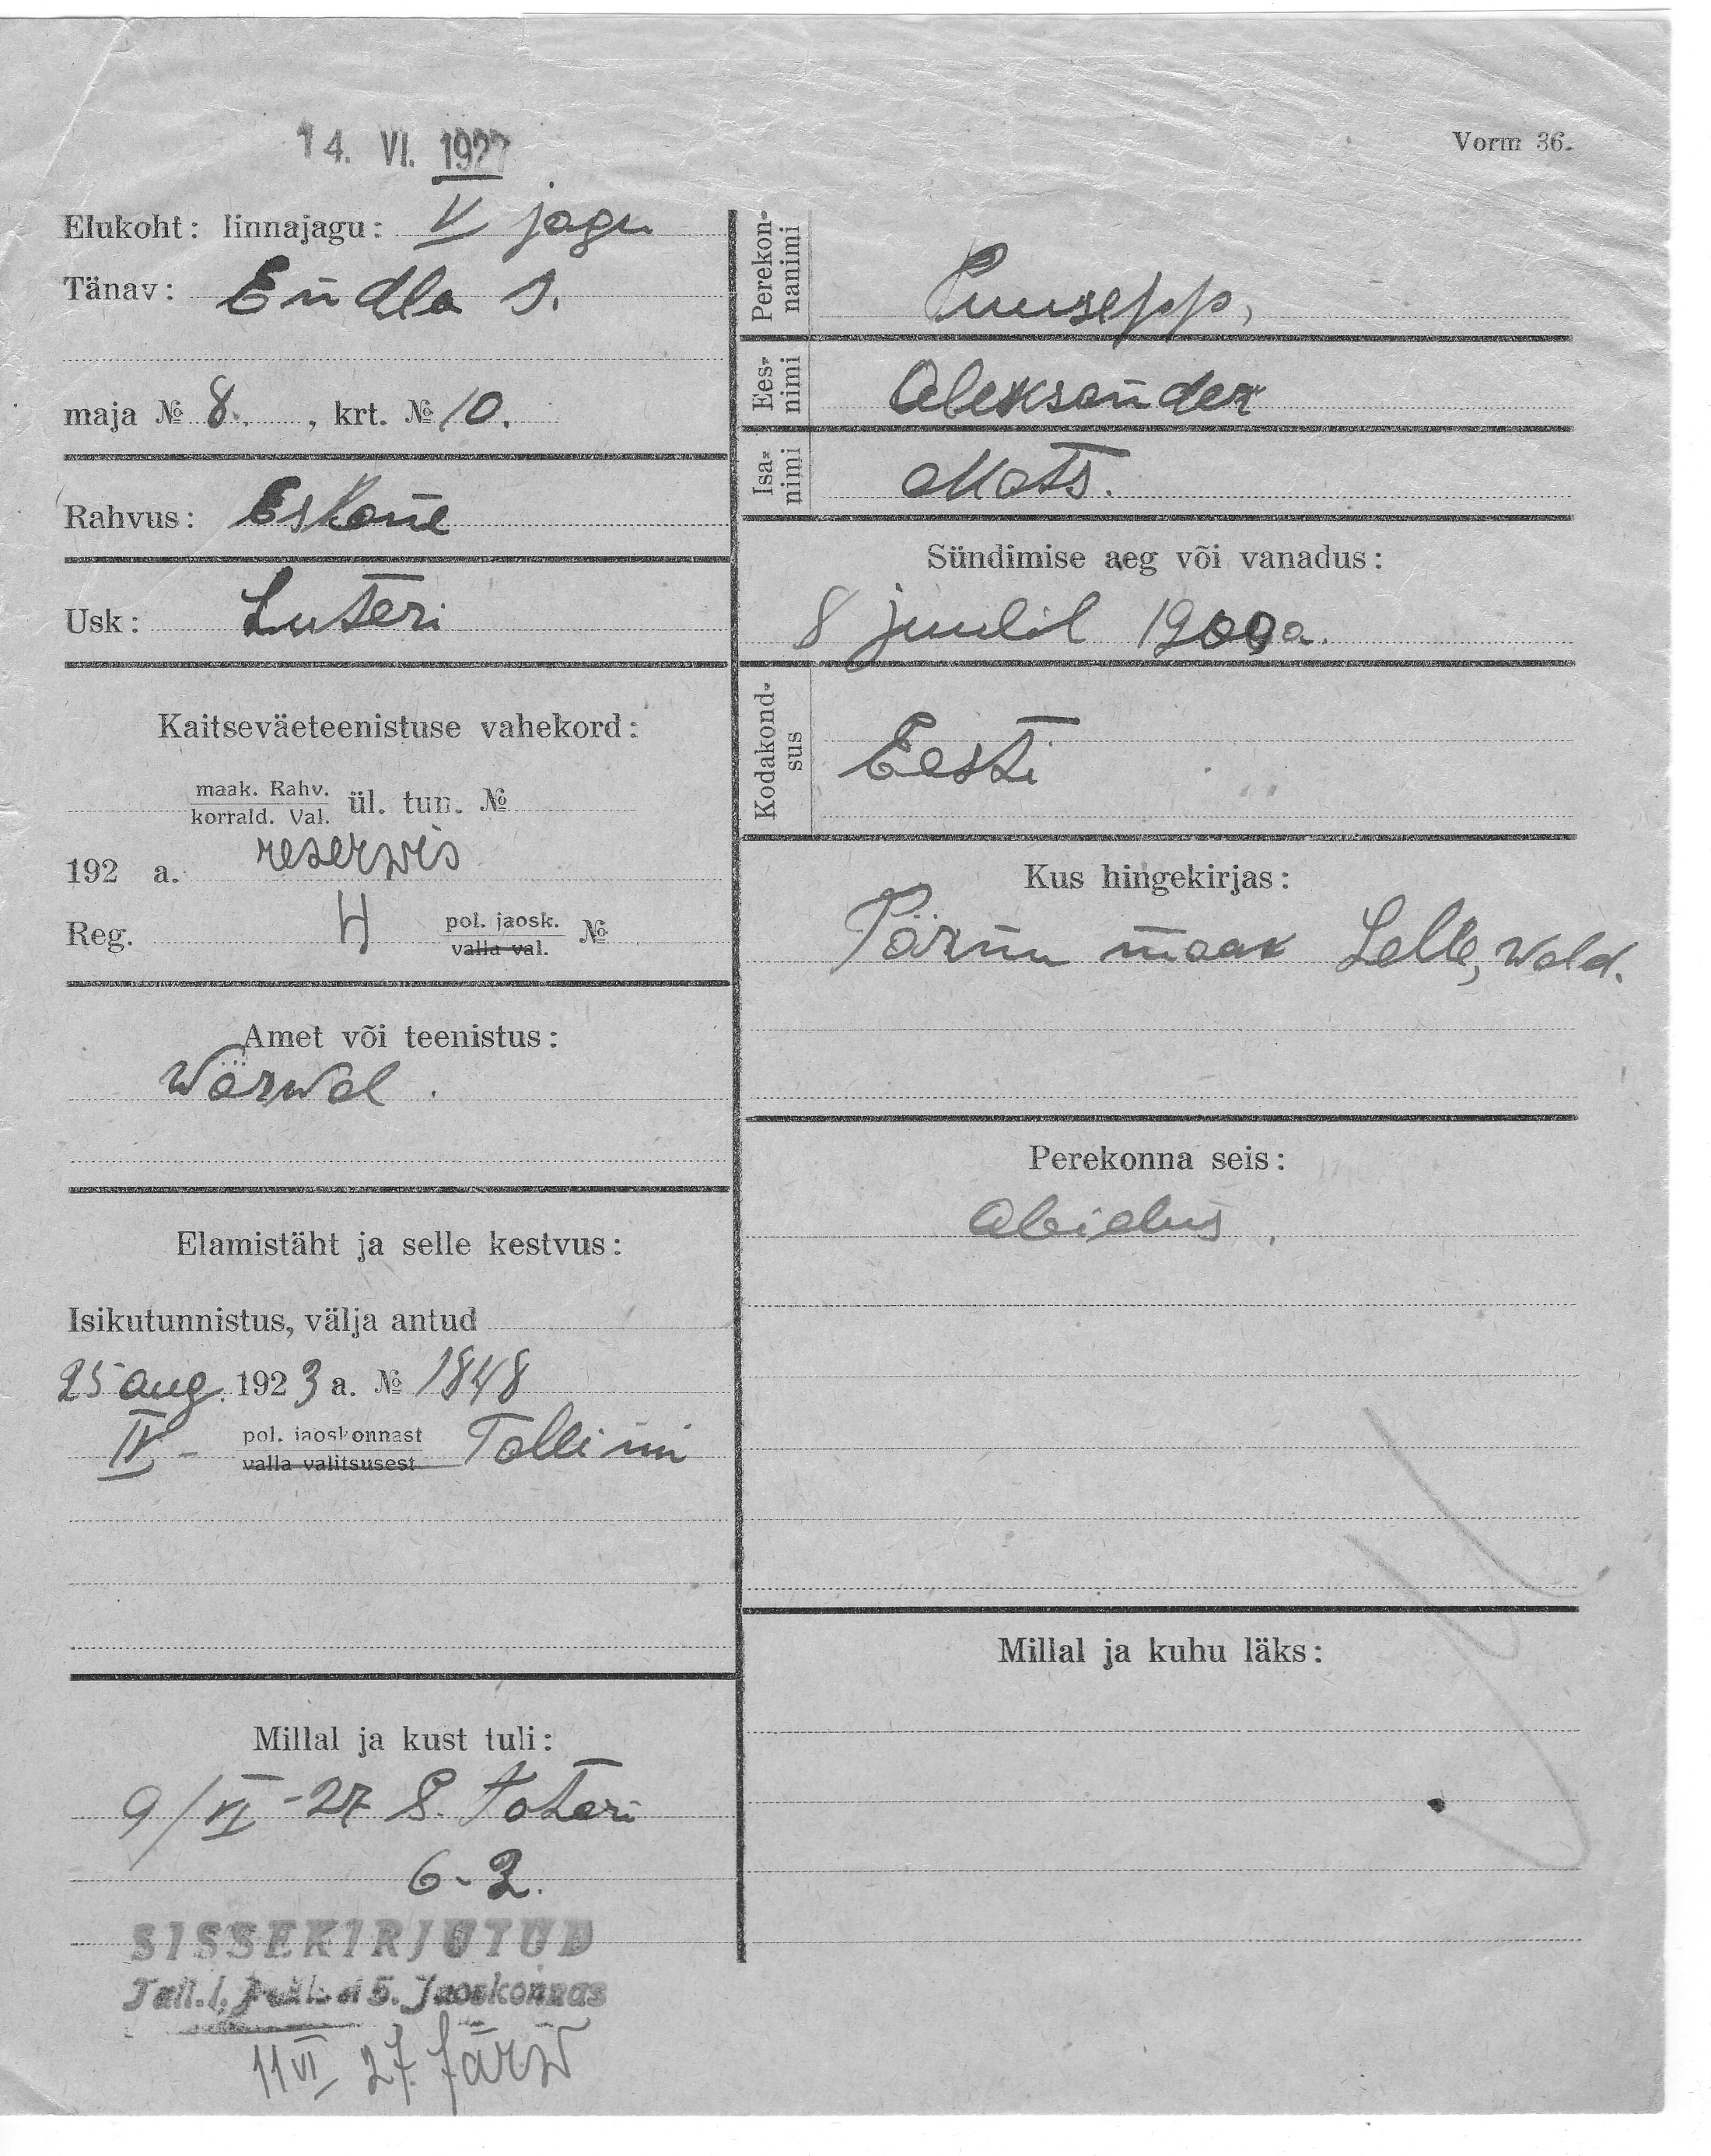 14. VI. 1927
Vorm 36.
Elukoht: linnajagu: V jagu
Tänav: Endla t.
maja № 8. , krt. № 10.
Rahvus: Estone
Usk: Luteri
Kaitseväeteenistuse vahekord:
maak. Rahv.
korrald. Val. ül. tun. №
192 a. reserwis
Reg. 4 pol. jaosk.
valla val. №
Amet või teenistus:
Wärwal.
Elamistäht ja selle kestvus:
Isikutunnistus, välja antud
25 aug. 1923 a. № 1848
IV - pol. jaoskonnast Tallinn
valla valitsusest
Millal ja kust tuli:
9/VI-27 S. Tatari
6-2.
SISSEKIRJUTUD
Tall. l. 5. Jaoskonnas
11 VI 27. Järw
Perekonnanimi
Puusepp,
Eesnimi
Aleksander
Isanimi
Mats.
Sündimise aeg või vanadus:
8 juulil 1900 a.
Kodakondsus
Eesti
Kus hingekirjas:
Pärnu maak Lelle, wald.
Perekonna seis:
Abielus.
Millal ja kuhu läks: